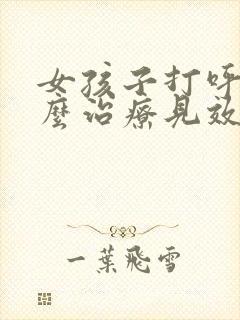 女孩子打呼
麼治療見效
一葉飛雪